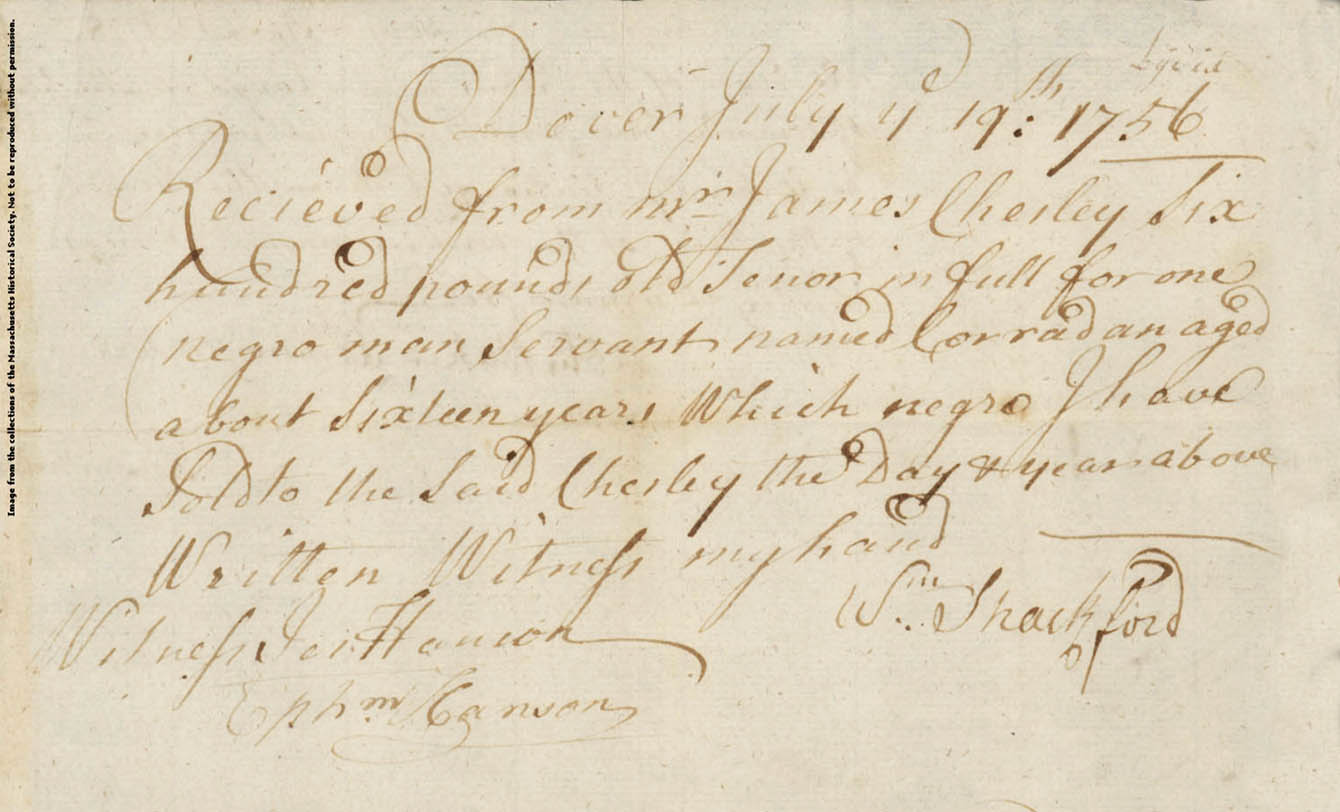 Dover July ye 19th: 1756
Recieved from mr James Chesley Six
hundred pounds old Tenor in full for one
negro man Servant named Corradan aged
about Sixteen years Which negro I have
Sold to the Said Chesley the Day & year above
Written Witness my hand
Wm Shackford
Witness Hanson
Ephm Hanson
Image from the collections of the Massachusetts Historical Society. Not to be reproduced without permission.